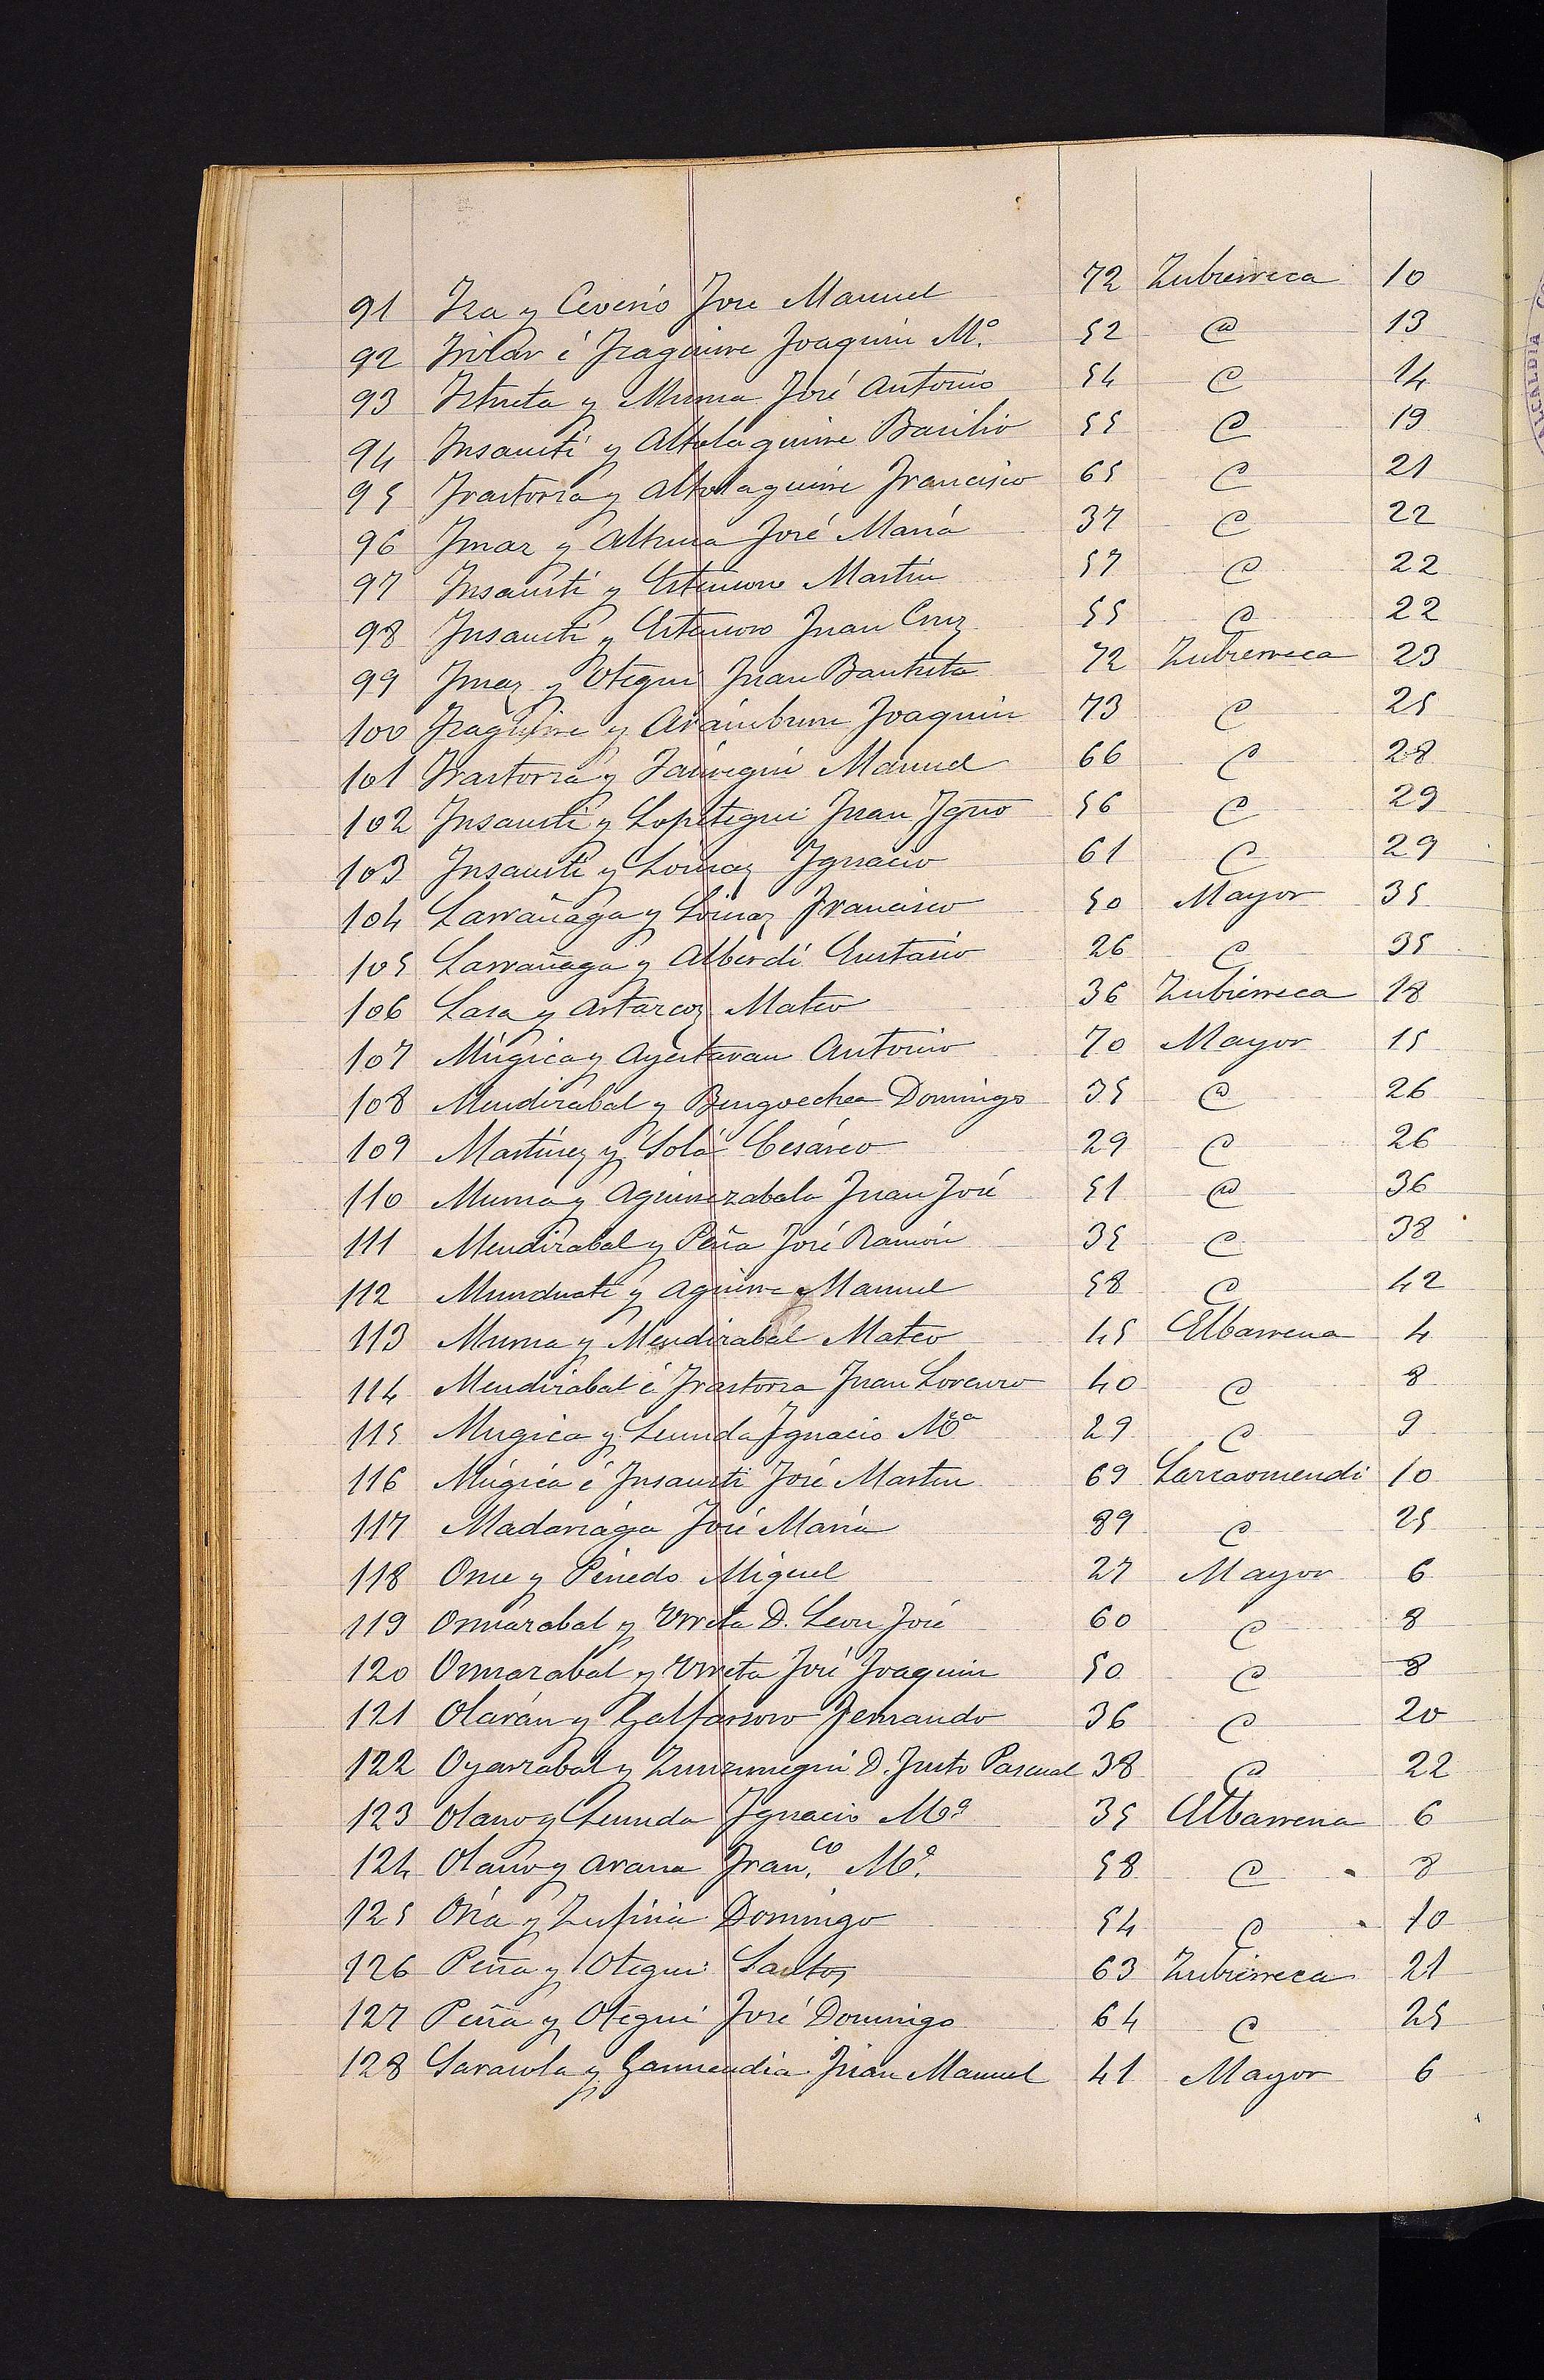 91 Iza y Ceverio Jose Manuel 72 Zubierreca 10
92 Irizar é Izaguirre Joaquin Mª. 52 @ 13
93 Iztueta y Murua José Antonio 54 @ 14
94 Insausti y Altolaguirre Basilio 55 @ 19
95 Irastorza y Altolaguirre Francisco 65 @ 21
96 Imaz y Altuna José María 37 @ 22
97 Insausti y Martin 57 @ 22
98 Insausti y Juan Cruz 55 @ 22
99 Imaz y Otegui Juan Bautista 72 Zubierreca 23
100 Izaguirre y Aramburu Joaquin 73 @ 25
101 Irastorza y Jauregui Manuel 66 @ 28
102 Insausti y Lopetegui Juan Igno 56 @ 29
103 Insausti y Loinaz Ignacio 61 @ 29
104 Larrañaga y Loinaz Francisco 50 Mayor 35
105 Larrañaga y Alberdi Eustasio 26 @ 35
106 Lasa y Astarcoz Mateo 36 Zubierreca 18
107 Múgica y Ayestaran Antonio 70 Mayor 15
108 Mendizabal y Bengoechea Domingo 35 @ 26
109 Martinez y Solá Cesáreo 29 @ 26
110 Murua y Aguirrezabala Juan José 51 @ 36
111 Mendizabal y Peña José Ramón 35 @ 38
112 Munduate y Aguirre Manuel 58 @ 42
113 Murua y Mendizabal Mateo 45 Elbarrena 4
114 Mendizabal é Irastorza Juan Lorenzo 40 @ 8
115 Mugica y Leunda Ignacio Mª 29 @ 9
116 Múgica é Insausti José Martin 69 Larraomendi 10
117 Madariaga José María 89 @ 25
118 Onue y Pinedo Miguel 27 Mayor 6
119 Ormazabal y Urreta D. Leon José 60 @ 8
120 Ormazabal y Urreta José Joaquin 50 @ 8
121 Olarán y Galfarsoro Fernando 36 @ 20
122 Oyarzabal y Zunzunegui D. Justo Pascual 38 @ 22
123 Olano y Leunda Ignacio Mª 35 Elbarrena 6
124 Olano y Arana Fran.co Mª. 58 @ 8
125 Oria y Zufiria Domingo 54 @ 10
126 Peña y Otegui Santos 63 Zubierreca 21
127 Peña y Otegui José Domingo 64 @ 25
128 Sarasola y Garmendia Juan Manuel 41 Mayor 6
ALCALDIA